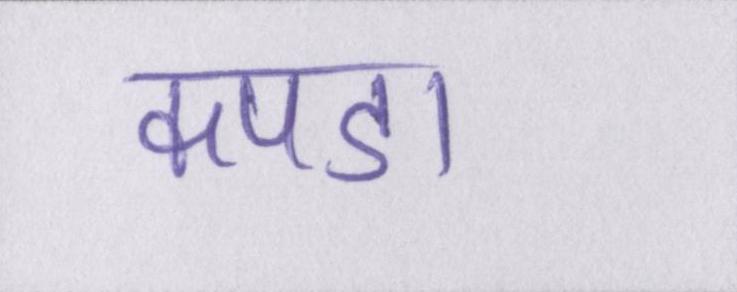 कपडा